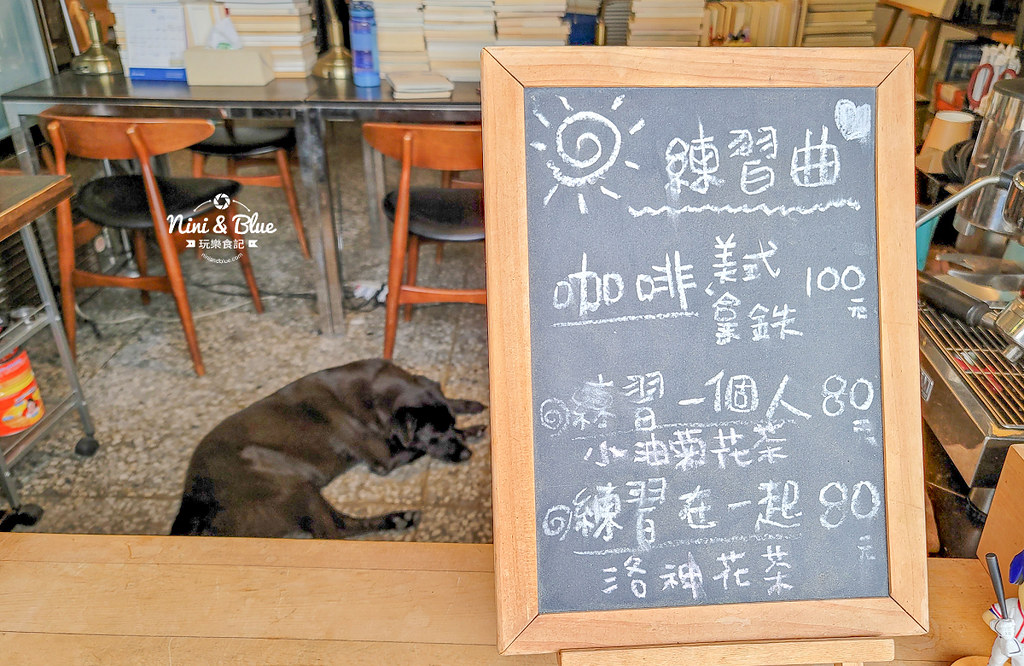 練習曲
咖啡 美式 100元
拿鉄
練習一個人 80元
小油菊花茶
練習在一起 80元
洛神花茶
Nini & Blue
玩樂食記
niniandblue.com